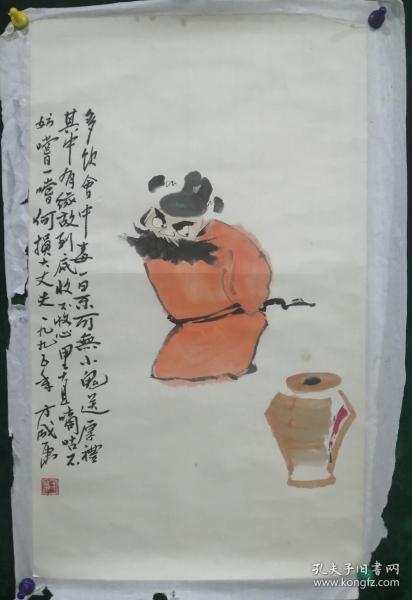 多饮會中毒一日不可無小鬼送厚禮
其中有缘故到底收不收心里直嘀咕不
妨嚐一嚐何損大丈夫 一九九五年 方成画
孔夫子旧书网
www.kongfz.com